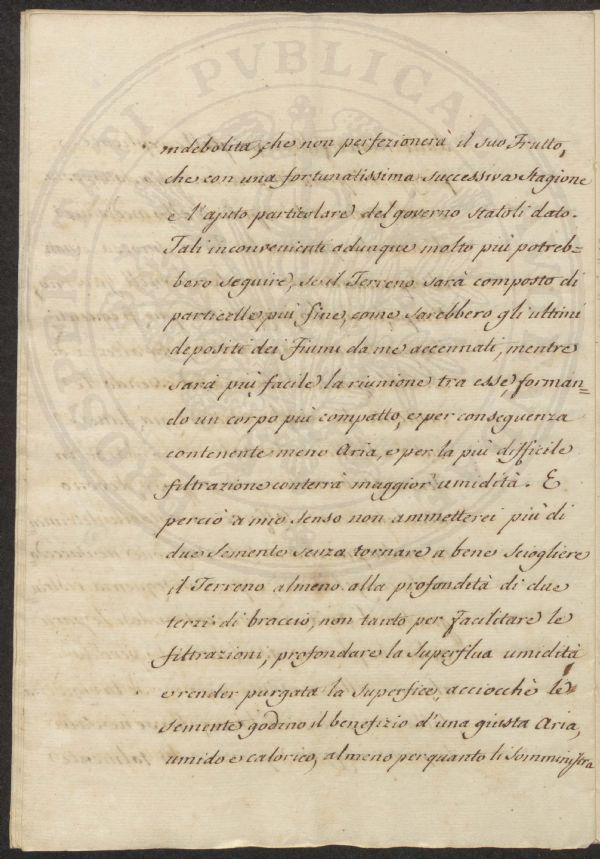 indebolita, che non perfezionerà il suo Frutto,
che con una fortunatissima successiva Stagione
e l'ajuto particolare del governo statoli dato.
Tali inconvenienti adunque molto più potreb=
bero seguire, se il Terreno sarà composto di
particelle più fine, come sarebbero gli ultimi
depositi dei Fiumi da me accennati, mentre
sarà più facile la riunione tra esse, forman=
do un corpo più compatto, e per conseguenza
contenente meno Aria, e per la più difficile
filtrazione conterrà maggior umidità. E
perciò a mio senso non ammetterei più di
due Semente senza tornare a bene sciogliere
il Terreno almeno alla profondità di due
terzi di braccio, non tanto per facilitare le
filtrazioni, profondare la superflua umidità
e render purgata la superfice, acciocchè le
semente godino il benefizio d'una giusta Aria,
umido e calorico, almeno per quanto li somministra